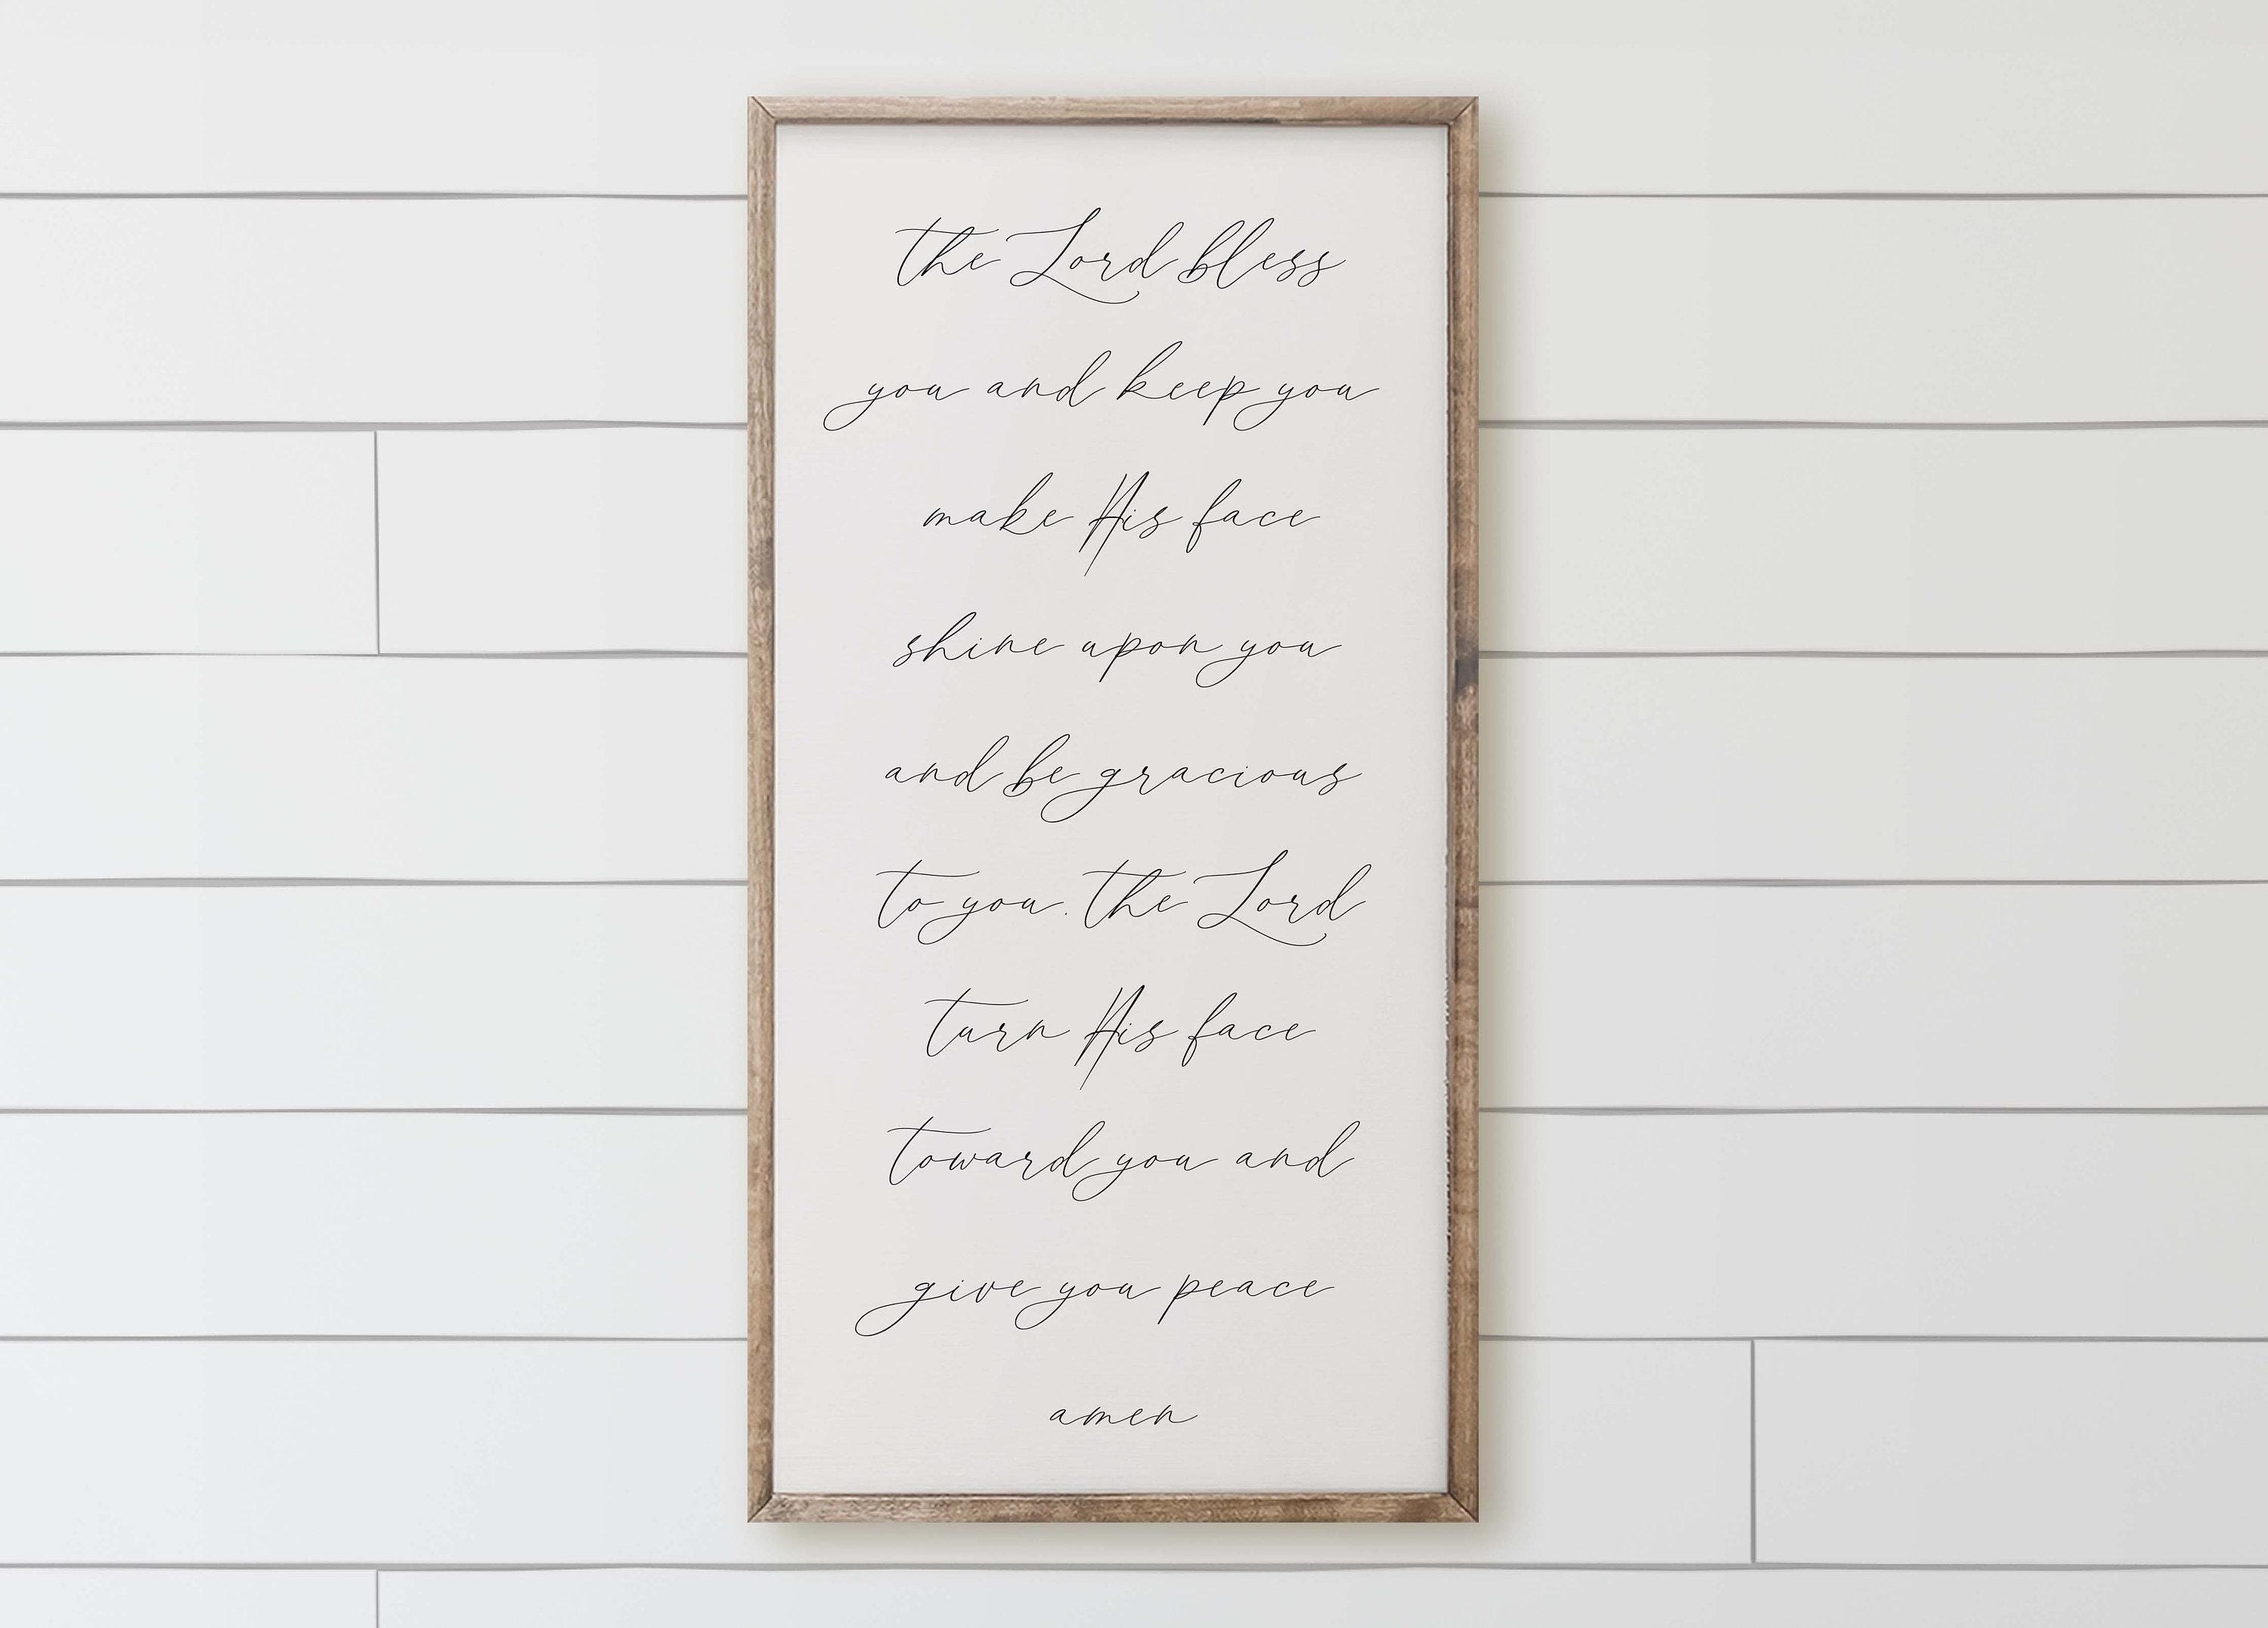 the Lord bless
you and keep you
make His face
shine upon you
and be gracious
to you. the Lord
turn His face
toward you and
give you peace
amen